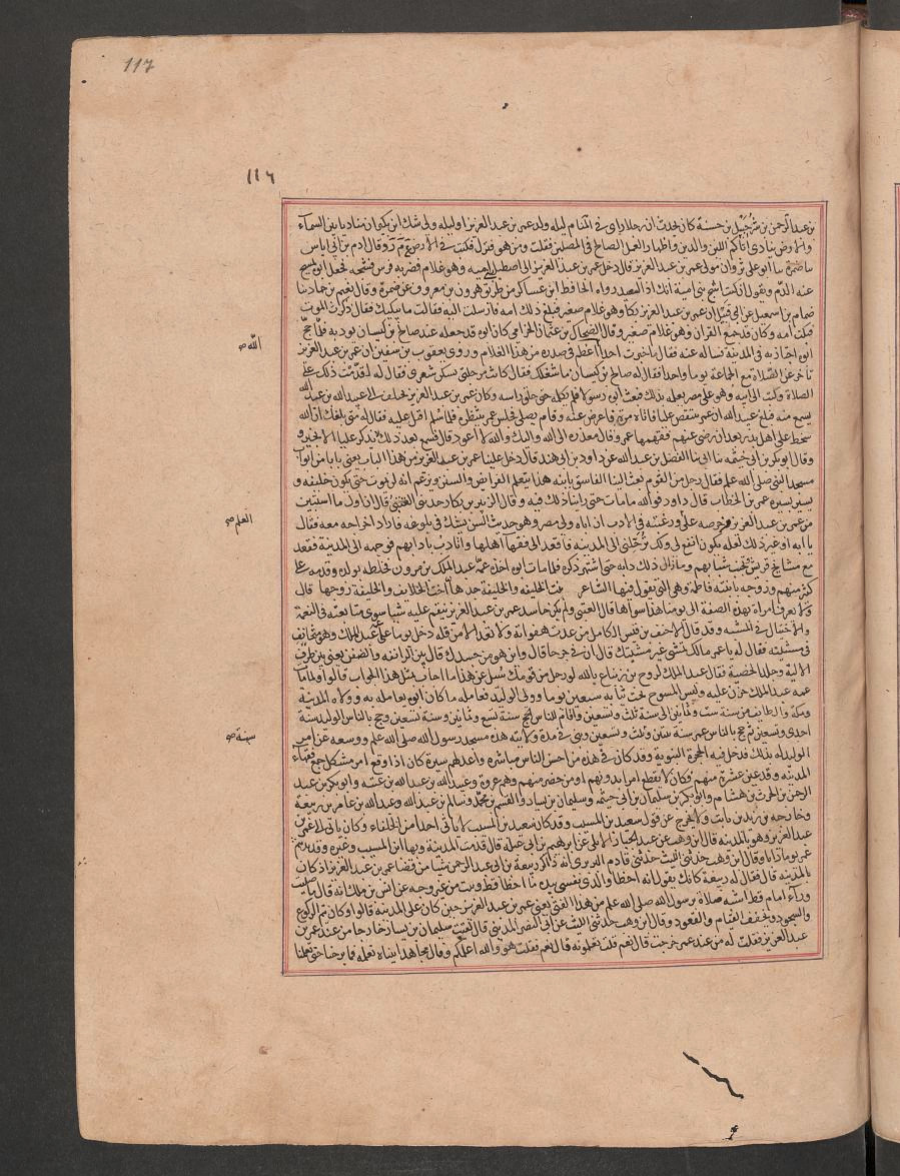 117
١١٦
بن عبد الرحمن بن شرحبيل بن حسنة كان يحدث ان رجلا راى في المنام ليلة ولد عمر بن عبد العزيز او ليلة ولى شك ابن بكير ان مناديا بين السماء
والارض ينادى اتاكم اللين والدين واظهار العمل الصالح في المصلين فقلت ومن هو فنزل فكتب في الارض ع م ر وقال ادم بن ابي اياس
سا ضمرة سا ابو على ثروان مولى عمر بن عبد العزيز قال دخل عمر بن عبد العزيز الى اصطبل ابيه وهو غلام فضربه فرس فشجه فجعل ابوه يمسح
عنه الدم ويقول ان كنت اشج بني امية انك اذا لسعيد رواه الحافظ ابن عساكر من طريق هرون بن معروف عن ضمرة وقال نعيم بن حماد سا
ضمام بن اسمعيل عن ابي قبيل ان عمر بن عبد العزيز بكا وهو غلام صغير فبلغ ذلك امه فارسلت اليه فقالت ما يبكيك فقال ذكرت الموت
فبكت امه وكان قد جمع القران وهو غلام صغير وقال الضحاك بن عثمان الخزامي كان ابوه قد جعله عند صالح بن كيسان يودبه فلما حج
ابوه اجتاز به في المدينة فساله عنه فقال ما خبرت احدا الله اعظم في صدره من هذا الغلام وروى يعقوب بن سفين ان عمر بن عبد العزيز
تاخر عن الصلاة مع الجماعة يوما واحدا فقال له صالح بن كيسان ما شغلك فقال كانت مرجلتي تسكن شعرى فقال له اقدمت ذلك على
الصلاة وكتب الى ابيه وهو على مصر يعلمه بذلك فبعث ابوه رسولا فلم يكلمه حتى حلق راسه وكان عمر بن عبد العزيز يختلف الى عبيد الله بن عبد الله
يسمع منه فبلغ عبيد الله ان عمر ينتقص عليا فاتاه عمر فاعرض عنه وقام يصلى فجلس عمر ينتظره فلما سلم اقبل عليه فقال له متى بلغك ان الله
سخط على اهل بدر بعد ان رضى عنهم ففهمها عمر وقال معذرة الى الله واليك والله لا اعود قال فما سمع بعد ذلك يذكر عليا الا بخير و
وقال ابو بكر بن ابي خيثمة سا ابي سا المفضل بن عبد الله عن داود بن ابي هند قال دخل علينا عمر بن عبد العزيز من هذا الباب يعني بابا من ابواب
مسجد النبي صلى الله علم فقال رجل من القوم بعث الينا الفاسق بابنه هذا يتعلم الفرائض والسنن ويزعم انه لن يموت حتى يكون خليفة و
يسير بسيرة عمر بن الخطاب قال داود فو الله ما مات حتى راينا ذلك فيه وقال الزبير بن بكار حدثني العتبي قال ان اول ما استبين
من عمر بن عبد العزيز وحرصه على العلم ورغبته في الادب ان اباه ولى مصر وهو حديث السن يشك في بلوغه فاراد اخراجه معه فقال
يا ابه او غير ذلك لعله يكون انفع لى ولك ترحلني الى المدينة فاقعد الى فقها اهلها واتادب بادابهم فوجهه الى المدينة فقعد
مع مشايخ قريش وتجنب شبابهم وما زال ذلك دابه حتى اشتهر ذكره فلما مات ابوه اخذه عمه عبد الملك بن مرون فخلطه بولده وقدمه على
كثير منهم وزوجه بابنته فاطمة وهي التي يقول فيها الشاعر بنت الخليفة والخليفة جدها اخت الخلائف والخليفة زوجها قال
ولا يعرف امراة بهذه الصفة الى يومنا هذا سواها قال العتبي ولم يكن حاسد عمر بن عبد العزيز ينقم عليه شيا سوى متابعته في النعمة
والاختيال في المشية وقد قال الاحنف بن قيس الكامل من عدت هفواته ولا تعد الا من قلة ودخل يوما على عبد الملك وهو يتجانف
في مشيته فقال له يا عمر مالك تمشى غير مشيتك قال ان في جرحا قال واين هو من جسدك قال بين الرانفة والصفن يعني بين طرف
الالية وجلدة الخصية فقال عبد الملك لروح بن زنباع بالله لو رجل من قومك سئل عن هذا ما اجاب بمثل هذا الجواب قالوا ولما مات
عمه عبد الملك حزن عليه ولبس المسوح تحت ثيابه سبعين يوما وولى الوليد فعامله بما كان ابوه يعامله به وولاه المدينة
ومكة والطايف من سنة ست وثمانين الى سنة ثلث وتسعين واقام للناس الحج سنة تسع وثمانين وسنة تسعين وحج بالناس الوليد سنة
احدى وتسعين ثم حج بالناس عمر سنة ثنتين وثلث وتسعين وبنى في مدة ولايته هذه مسجد رسول الله صلى الله علم ووسعه عن امر
الوليد له بذلك فدخل فيه الحجرة النبوية وقد كان في هذه من احسن الناس معاشرة واعدلهم سيرة كان اذا وقع له امر مشكل جمع فقهاء
المدينة وقد عين عشرة منهم فكان لا يقطع امرا بدونهم او من حضر منهم وهم عروة وعبيد الله بن عبد الله بن عتبة وابو بكر بن عبد
الرحمن بن الحرث بن هشام وابو بكر بن سلمان بن ابي حثمة وسليمان بن يسار والقسم بن محمد وسالم بن عبد الله وعبد الله بن عامر بن ربيعة
وخارجة بن زيد بن ثابت ولا يخرج عن قول سعيد بن المسيب وقد كان سعيد بن المسيب لا ياتي احدا من الخلفاء وكان ياتي الى عمر بن
عبد العزيز وهو بالمدينة قال ابن وهب عن عبد الجبار الايلى عن ابرهيم بن ابي عبلة قال قدمت المدينة وبها ابن المسيب وغيره وقد ندبهم
عمر يوما الى راى وقال ابن وهب حدثني الليث حدثني قادم البربرى انه ذاكر ربيعة بن ابي عبد الرحمن شيا من قضا عمر بن عبد العزيز اذ كان
بالمدينة قال فقال له ربيعة كانك يقول انه اخطا والذى نفسى بيده ما اخطا قط وثبت من غير وجه عن انس بن ملك انه قال ما صليت
وراء امام قط اشبه صلاة برسول الله صلى الله علم من هذا الفتى يعني عمر بن عبد العزيز حين كان على المدينة قالوا وكان يتم الركوع
والسجود ويخفف القيام والقعود وقال ابن وهب حدثني الليث عن ابي النضر المديني قال لقيت سليمان بن يسار خارجا من عند عمر بن
عبد العزيز فقلت له من عند عمر خرجت قال نعم قلت تعلمونه قال نعم فقلت هو والله اعلمكم وقال مجاهد اتيناه نعلمه فما برحنا حتى تعلمنا
الله صح
العلم صح
سنة صح